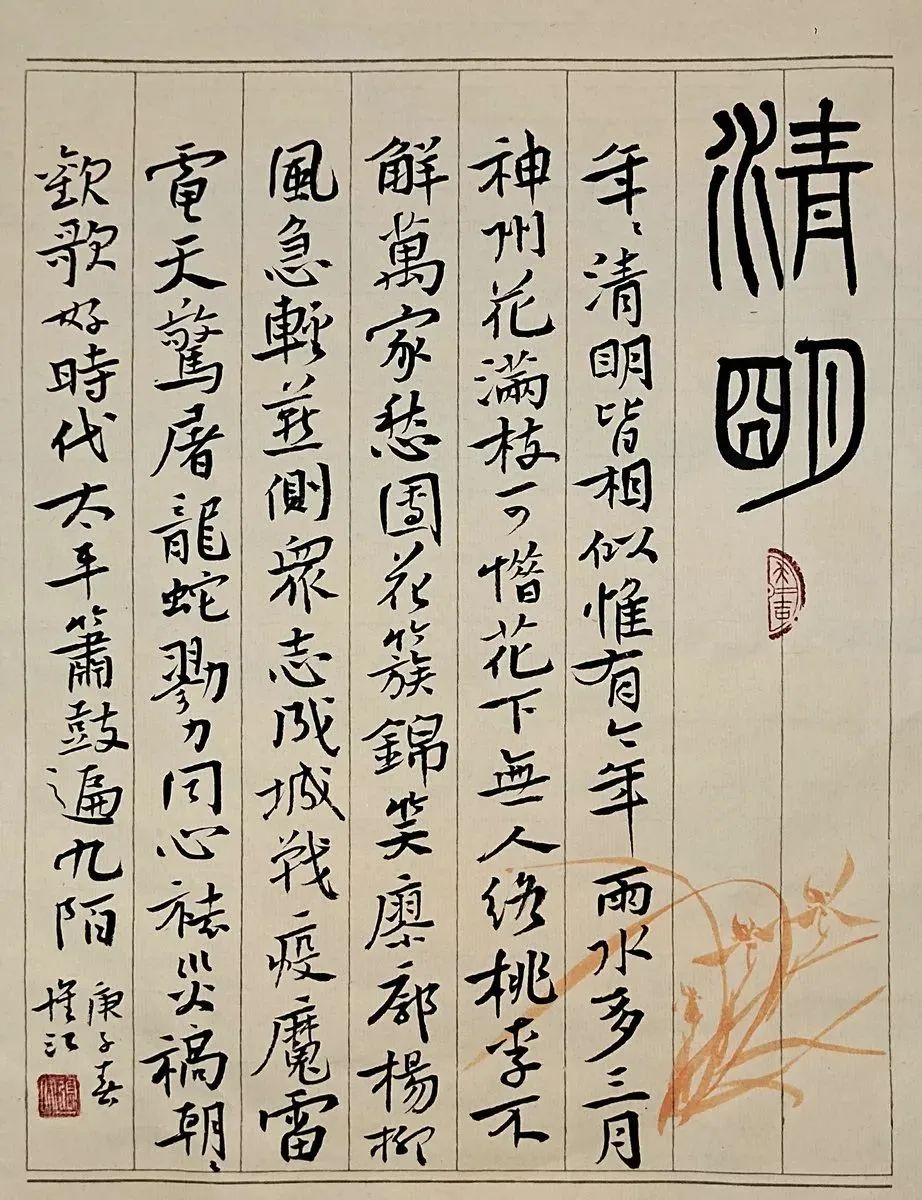 清明
年〻清明皆相似惟有今年雨水多三月
神州花滿枝可惜花下無人終桃李不
解萬家愁團花簇錦笑廖廓楊柳
風急輕燕側眾志成城戰疫魔雷
電天驚屠龍蛇勠力同心祛災禍朝〻
歡歌好時代太平簫鼓遍九陌
庚子春
惟江